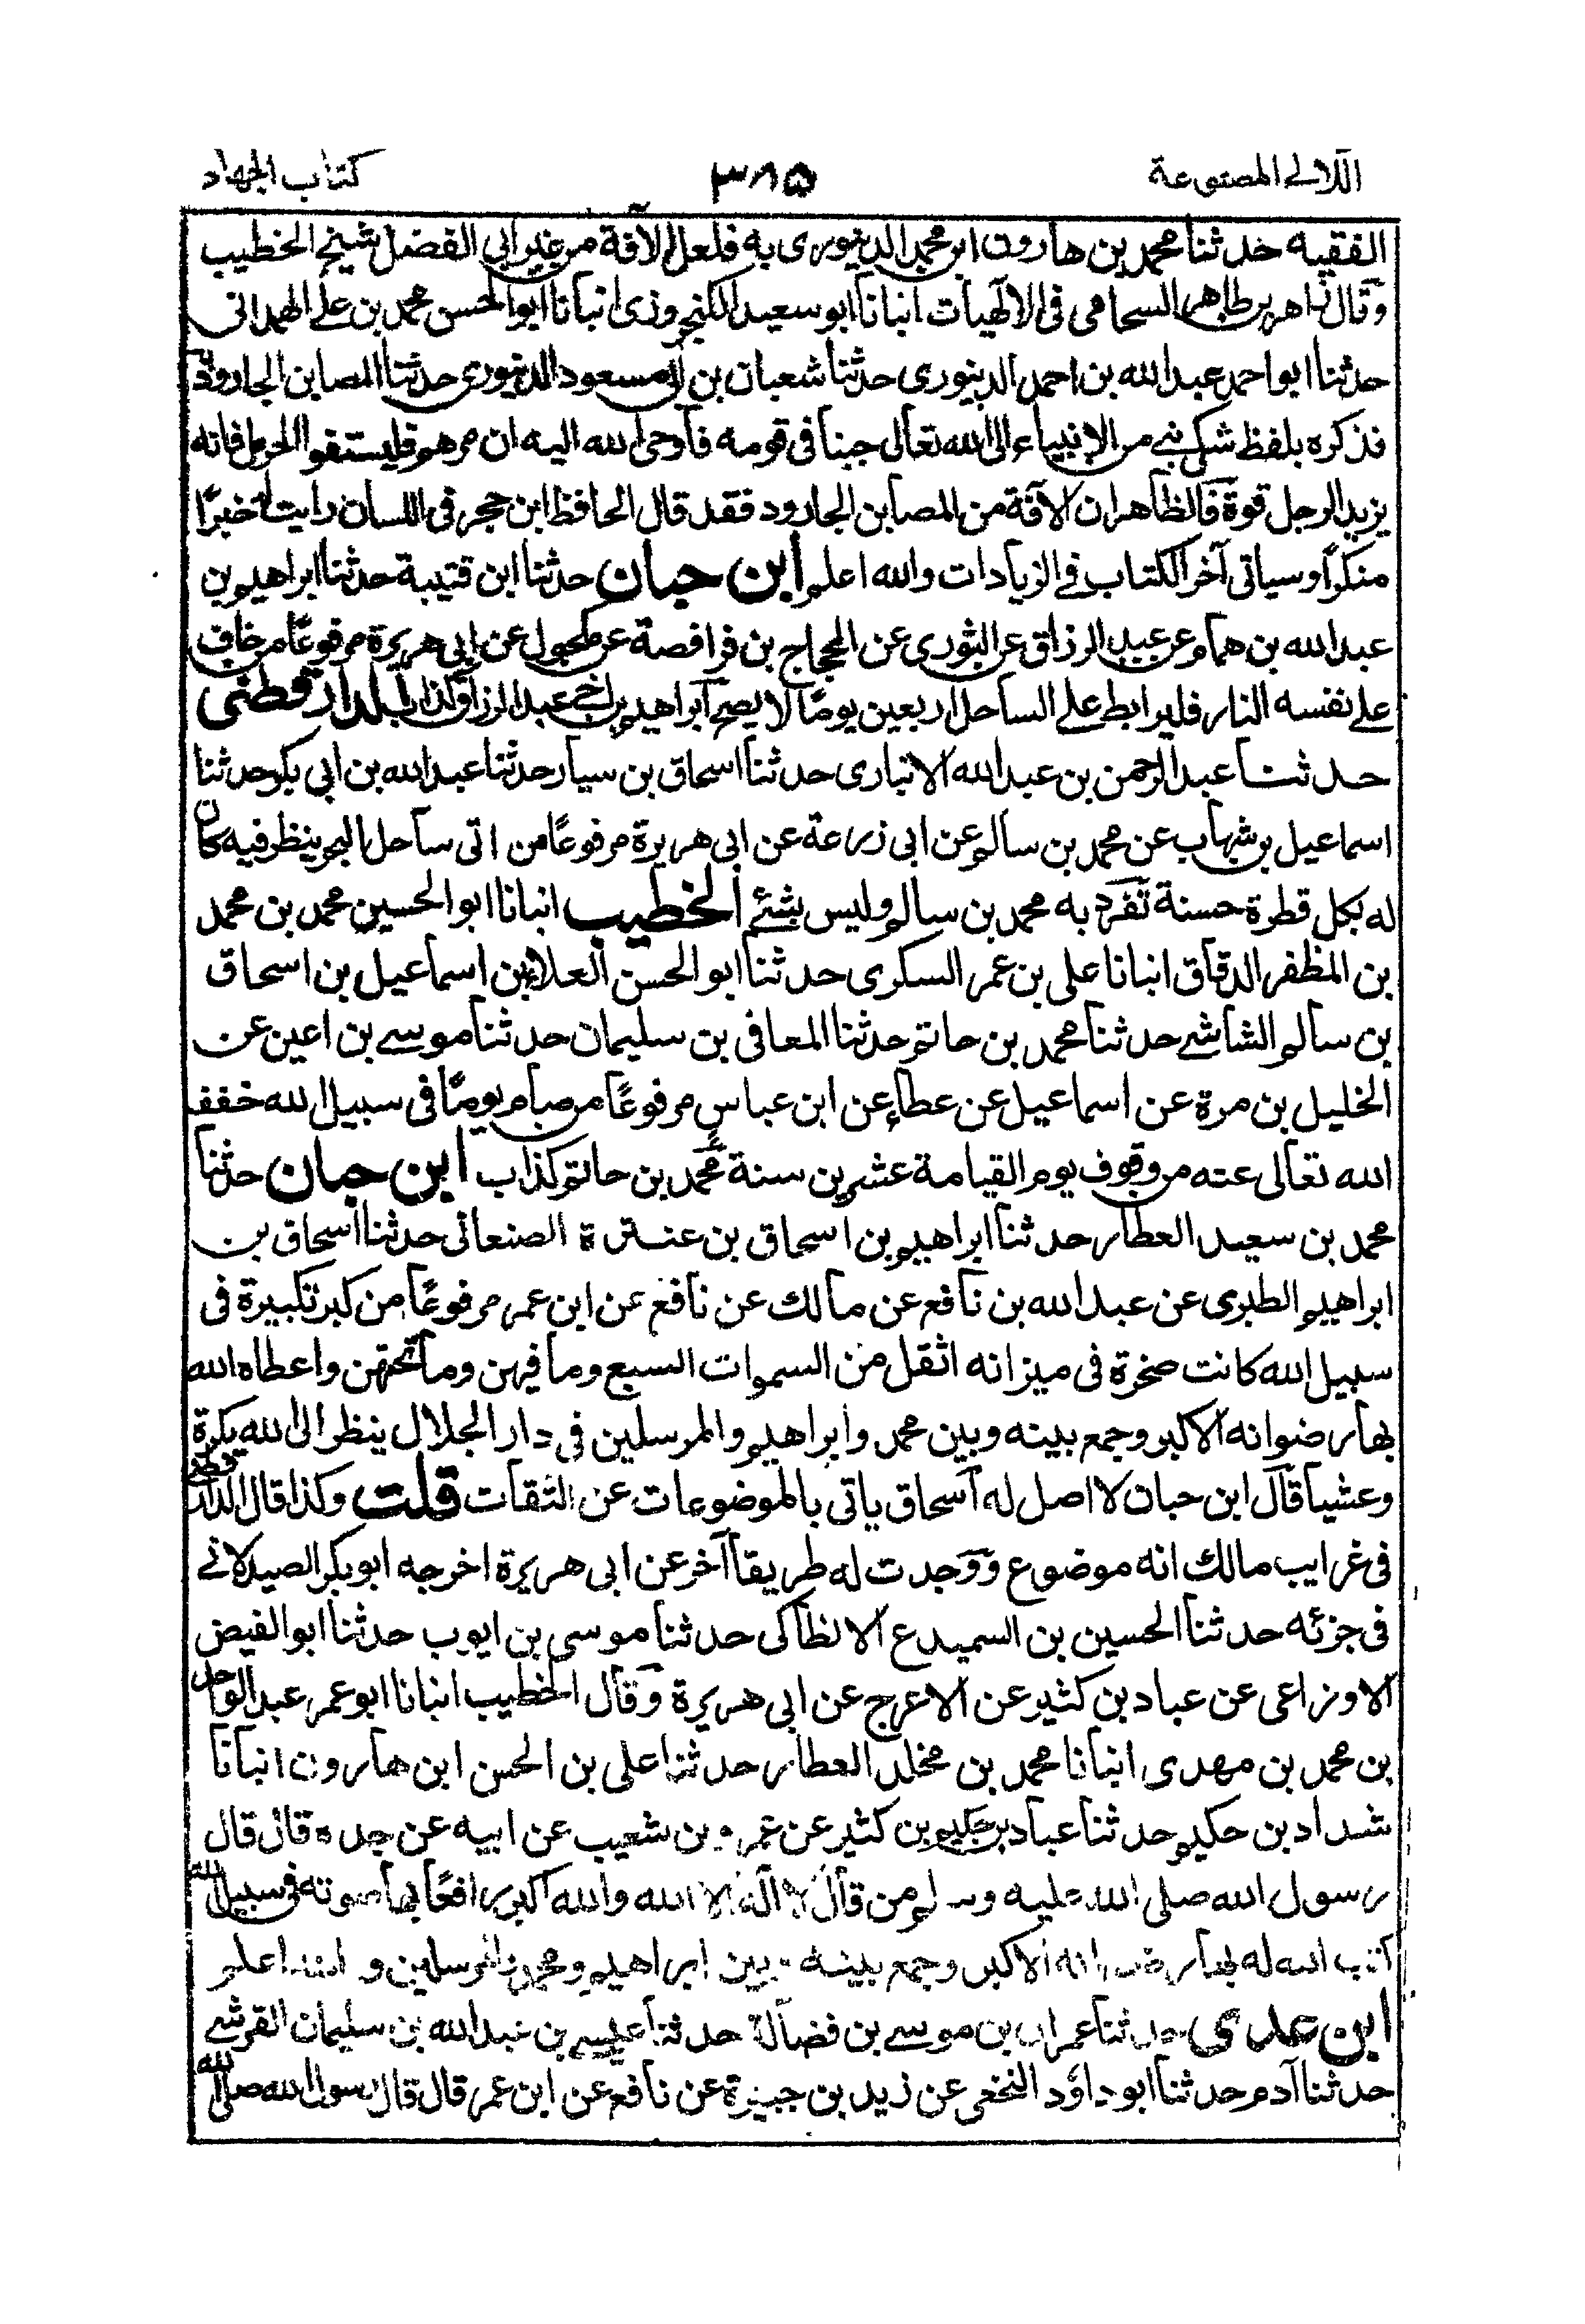 اللآلي المصنوعة ٣٨٥ كتاب الجهاد
الفقيه حدثنا محمد بن هارون ابن محمد الدينوري به فلعل الآفة من غير ابي الفضل شيخ الخطيب
وقال زاهر بن طاهر السحامي في الالٓهيات انبانا ابو سعيد الكنجروذي انبانا ابو الحسن محمد بن علي الهمداني
حدثنا ابو احمد عبد الله بن احمد الدينوري حدثنا شعبان بن ابي مسعود الدينوري حدثنا المصا بن الجارود
فذكره بلفظ شكى نبي من الانبياء الى الله تعالى جبنا في قومه فاوحى الله اليه ان مرهم فليستقوا الحرمل فانه
يزيد الرجل قوة فالظاهر ان الآفة من المصا بن الجارود فقد قال الحافظ ابن حجر في اللسان رايت له خبرًا
منكرًا وسياتي آخر الكتاب في الزيادات والله اعلم ابن حبان حدثنا ابن قتيبة حدثنا ابراهيم بن
عبد الله بن همام عن عبد الرزاق عن الثوري عن الحجاج بن فرافصة عن مكحول عن ابي هريرة مرفوعًا من خاف
على نفسه النار فليرابط على الساحل اربعين يومًا لا يصح ابراهيم بن اخي عبد الرزاق كذاب الدارقطني
حدثنا عبد الرحمن بن عبد الله الانباري حدثنا اسحاق بن سيار حدثنا عبد الله بن ابي بكر حدثنا
اسماعيل بن شهاب عن محمد بن سالم عن ابي زرعة عن ابي هريرة مرفوعًا من اتى ساحل البحر ينظر فيه كان
له بكل قطرة حسنة تفرد به محمد بن سالم وليس بشئ الخطيب انبانا ابو الحسين محمد بن محمد
بن المظفر الدقاق انبانا علي بن عمر السكري حدثنا ابو الحسن العلاء بن اسماعيل بن اسحاق
بن سالم الشاشي حدثنا محمد بن حاتم حدثنا المعافى بن سليمان حدثنا موسى بن اعين عن
الخليل بن مرة عن اسماعيل عن عطاء عن ابن عباس مرفوعًا من صام يومًا في سبيل الله خفف
الله تعالى عنه من وقوف يوم القيامة عشرين سنة محمد بن حاتم كذاب ابن حبان حدثنا
محمد بن سعيد العطار حدثنا ابراهيم بن اسحاق بن عنترة الصنعاني حدثنا اسحاق بن
ابراهيم الطبري عن عبد الله بن نافع عن مالك عن نافع عن ابن عمر مرفوعًا من كبر تكبيرة في
سبيل الله كانت صخرة في ميزانه اثقل من السموات السبع وما فيهن وما تحتهن واعطاه الله
بها رضوانه الاكبر وجمع بينه وبين محمد وابراهيم والمرسلين في دار الجلال ينظر الى الله بكرة
وعشيا قال ابن حبان لا اصل له اسحاق ياتي بالموضوعات عن الثقات قلت وكذا قال الدارقطني
في غرايب مالك انه موضوع ووجدت له طريقا آخر عن ابي هريرة اخرجه ابو بكر الصيدلاني
في جزئه حدثنا الحسين بن السميدع الانطاكي حدثنا موسى بن ايوب حدثنا ابو الفيض
الاوزاعي عن عباد بن كثير عن الاعرج عن ابي هريرة وقال الخطيب انبانا ابو عمر عبد الواحد
بن محمد بن مهدي انبانا محمد بن مخلد العطار حدثنا علي بن الحسن ابن هارون انبانا
شداد بن حكيم حدثنا عباد بن كثير عن عمرو بن شعيب عن ابيه عن جده قال قال
رسول الله صلى الله عليه وسلم من قال لا اله الا الله والله اكبر رافعًا بها صوته في سبيل الله
كتب الله له بها رضوانه الاكبر وجمع بينه وبين ابراهيم ومحمد والمرسلين والله اعلم
ابن عدي حدثنا عمران بن موسى بن فضالة حدثنا عيسى بن عبد الله بن سليمان القرشي
حدثنا آدم حدثنا ابو داود النخعي عن زيد بن جبيرة عن نافع عن ابن عمر قال قال رسول الله صلى الله